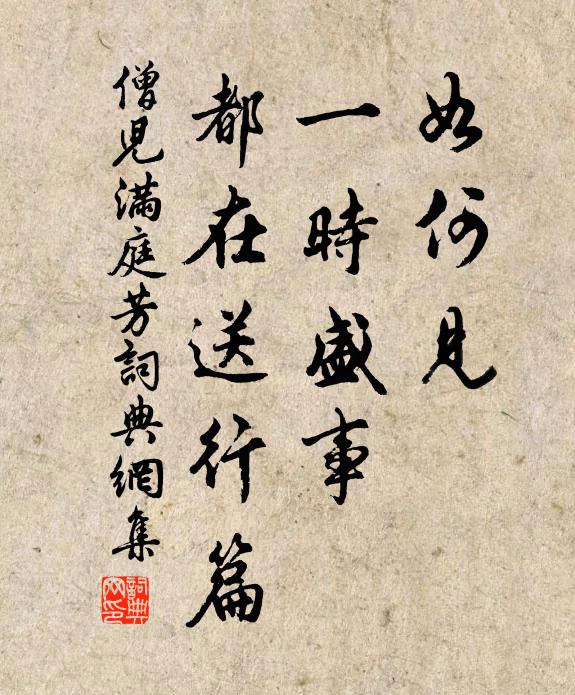 如何見
一時盛事
都在送行篇
僧兒滿庭芳詞典網集
詞典網印